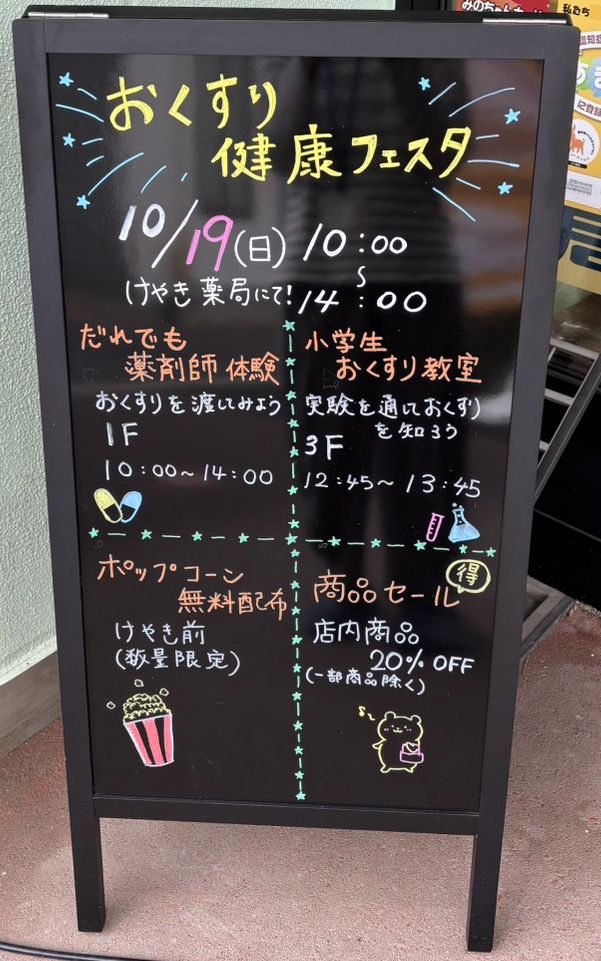 おくすり
健康フェスタ
10/19(日) 10:00
〜
けやき薬局にて! 14:00
だれでも
薬剤師体験
おくすりを渡してみよう
1F
10:00〜14:00
小学生
おくすり教室
実験を通しておくすり
を知ろう
3F
12:45〜13:45
ポップコーン
無料配布
けやき前
(数量限定)
得
商品セール
店内商品
20% OFF
(一部商品除く)
私たち
認知症
に登録